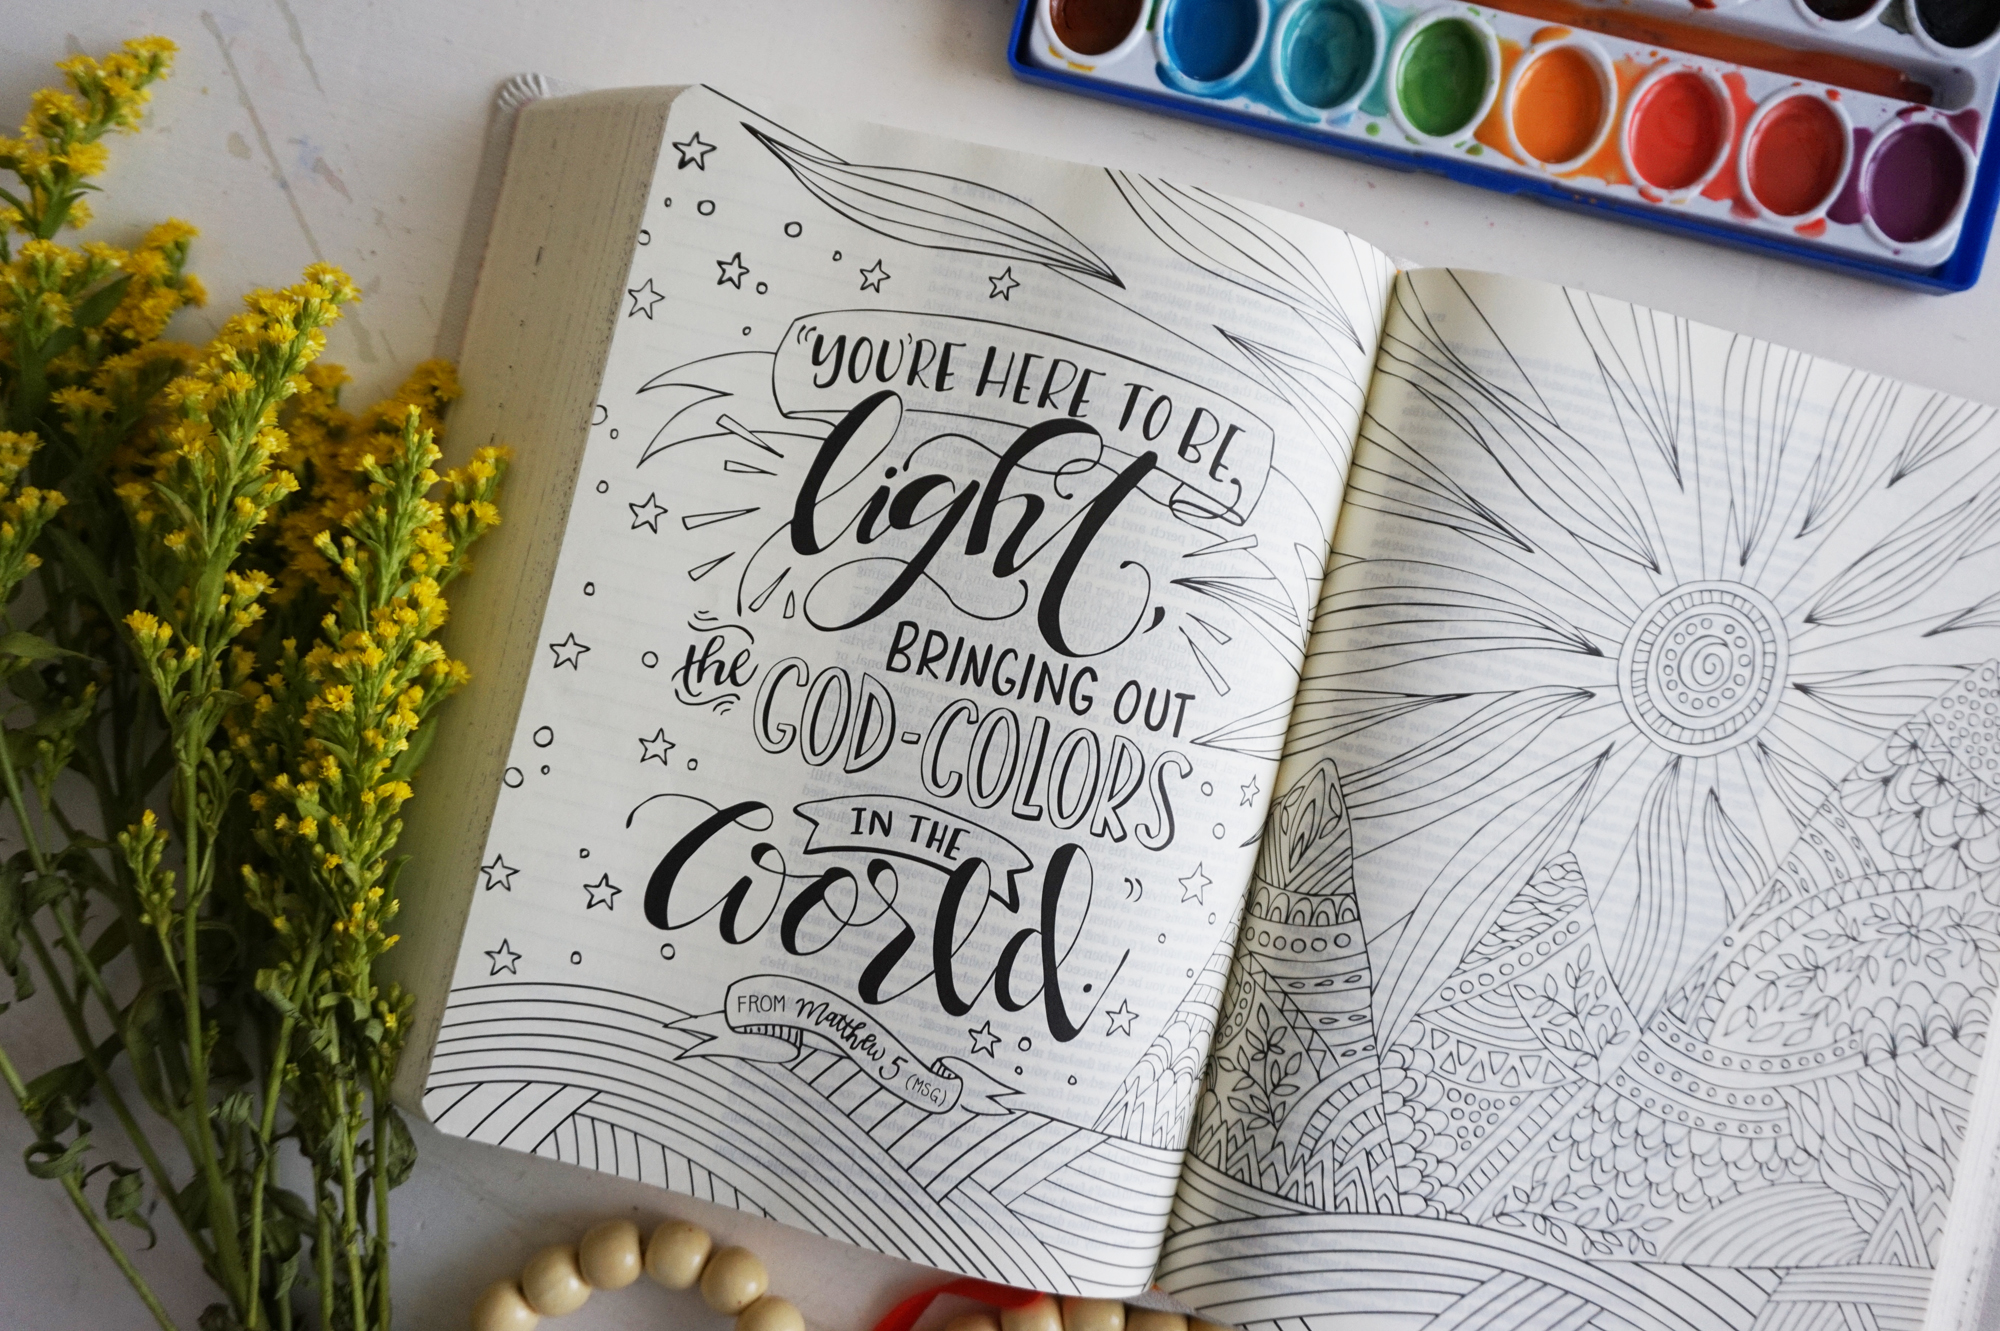 “YOU'RE HERE TO BE
light,
BRINGING OUT
the GOD-COLORS
IN THE
world.”
FROM Matthew 5 (MSG)